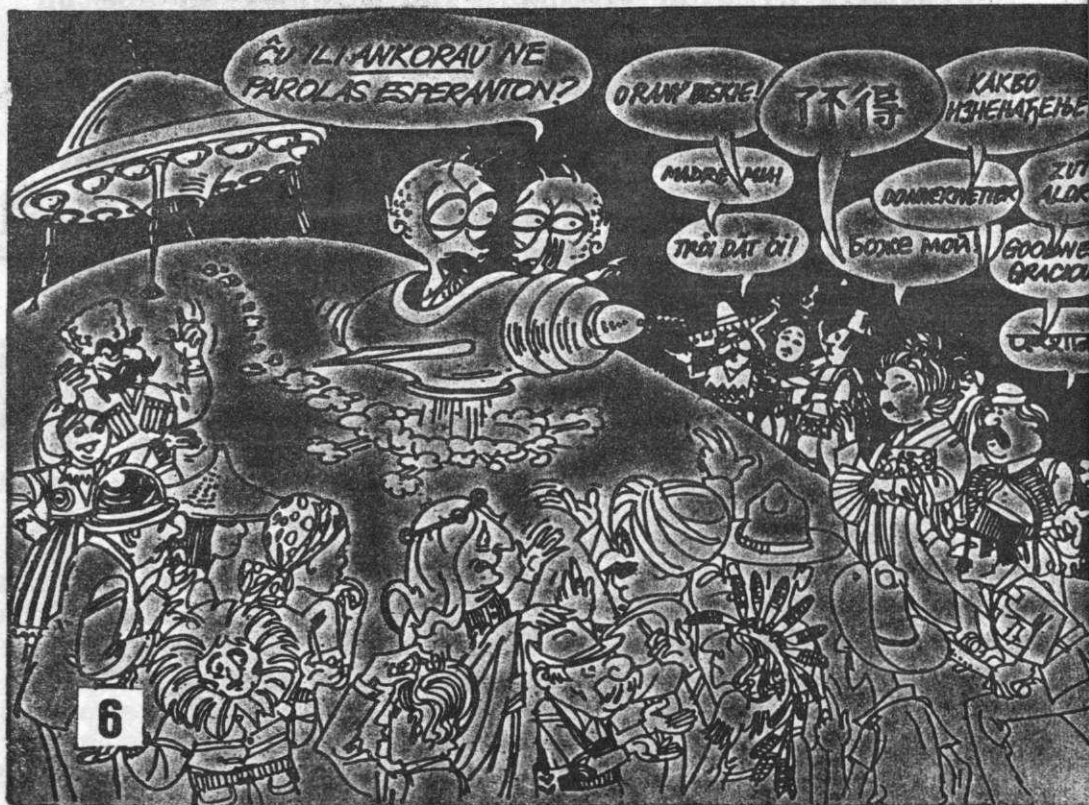 ĈU ILI ANKORAŬ NE
PAROLAS ESPERANTON?
O RANY BISKIE!
了不得
КАКВО
ИЗНЕНАЂЕЊЕ
MADRE MIA!
DONNERWETTER
ZUT
TRỜI ĐẤT ƠI!
БОЖЕ МОЙ!
GOODNE
GRACIO
6